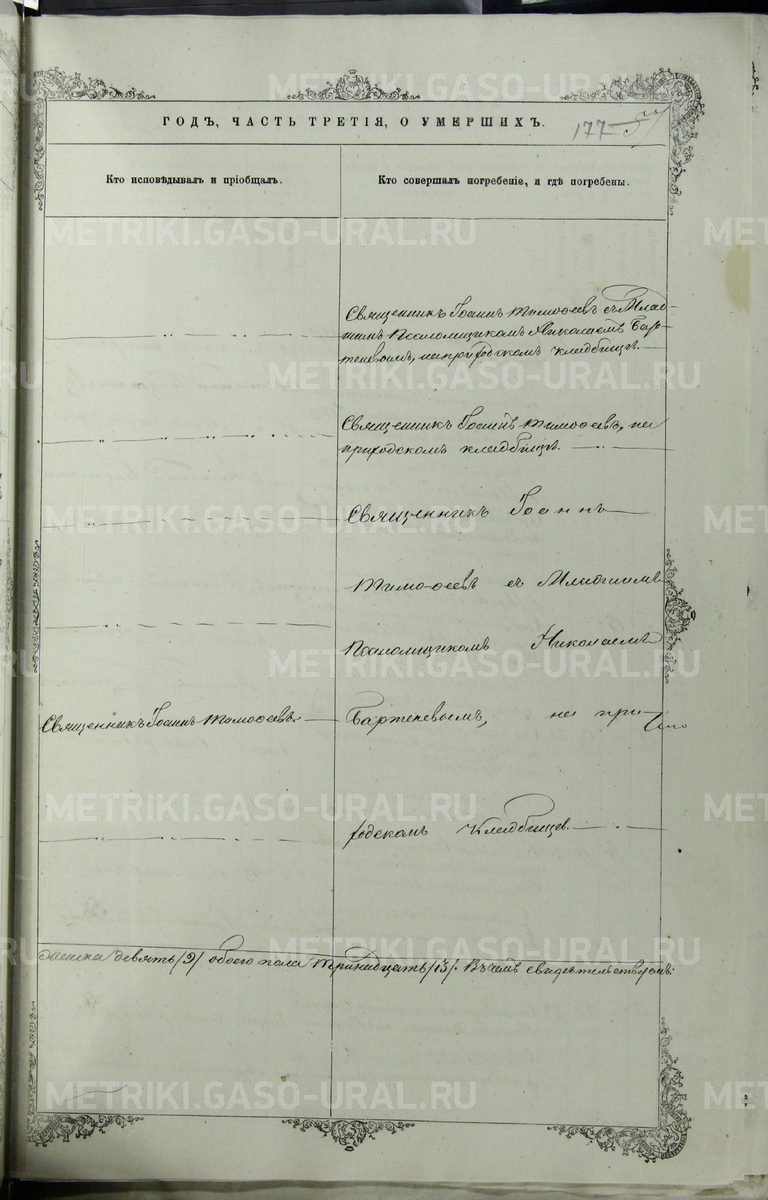 ГОДЪ, ЧАСТЬ ТРЕТІЯ, О УМЕРШИХЪ.
177
57
Кто исповѣдывалъ и пріобщалъ.
Кто совершалъ погребеніе, и гдѣ погребены.
Священникъ Іоаннъ Тимофеевъ съ Млад-
шимъ Псаломщикомъ Николаемъ Бар-
теневымъ, на приходскомъ кладбищѣ.
Священникъ Іоаннъ Тимофеевъ, на
приходскомъ кладбищѣ.
Священникъ Іоаннъ
Тимофеевъ съ Младшимъ
Псаломщикомъ Николаемъ
Священникъ Іоаннъ Тимофеевъ.
Бартеневымъ, на при-
ходскомъ кладбищѣ.
девять /9/ обоего пола тринадцать /13/. Въ чемъ свидѣтельствуемъ:
METRIKI.GASO-URAL.RU